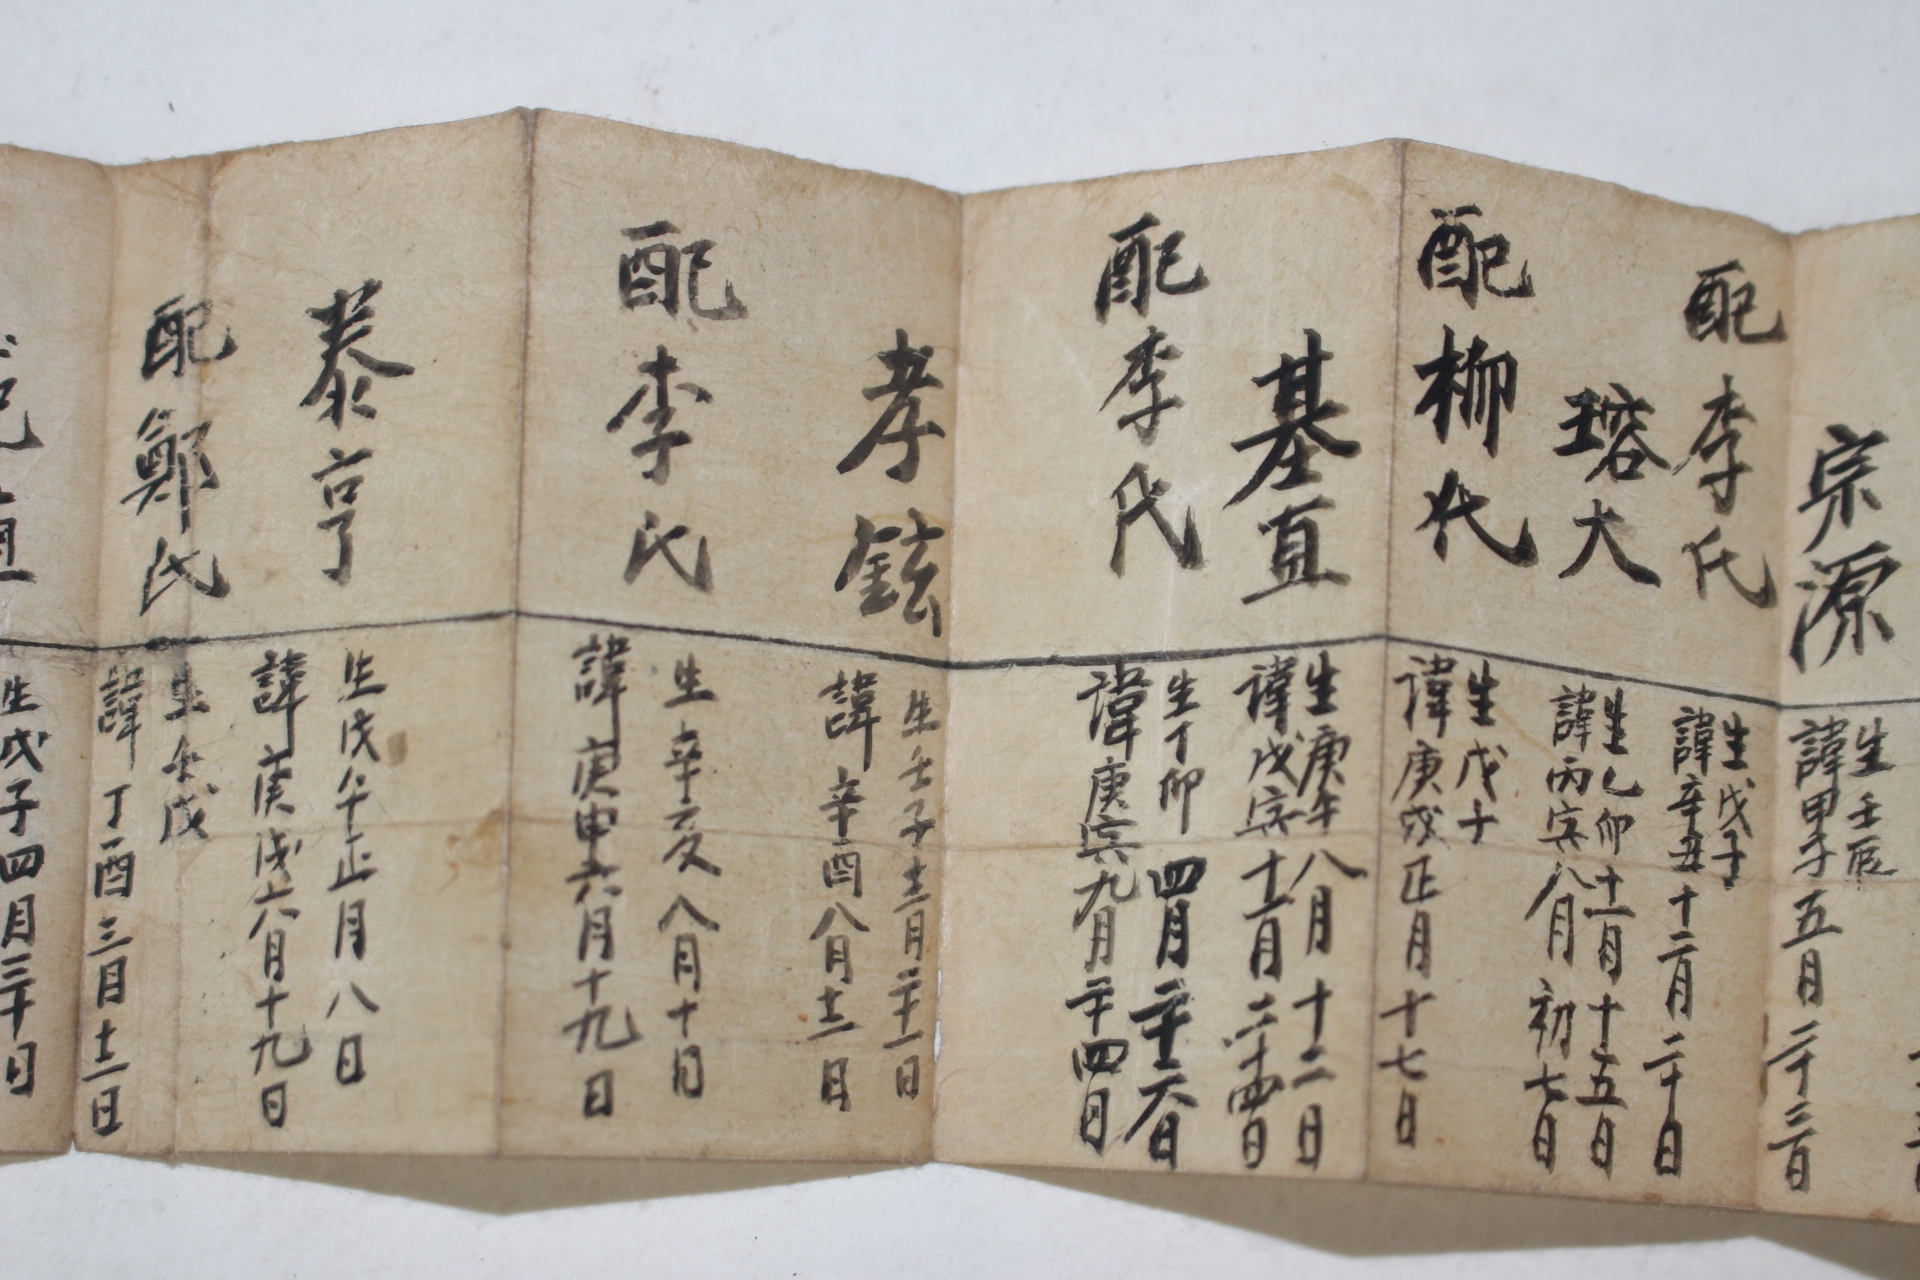 宗源
生壬辰
諱甲子五月二十三日
配李氏
生戊子
諱辛丑十二月二十日
瑢大
生乙卯十一月十五日
諱丙寅八月初七日
配柳氏
生戊子
諱庚戌正月十七日
基直
生庚午八月十二日
諱戊寅十二月二十四日
配李氏
生丁卯四月二十六日
諱庚寅九月二十四日
孝鉉
生壬子十二月二十一日
諱辛酉八月十二日
配李氏
生辛亥八月十日
諱庚申六月十九日
泰亨
生戊午正月八日
諱庚戌六月十九日
配鄭氏
生壬戌
諱丁酉三月十二日
生戊子四月三十日